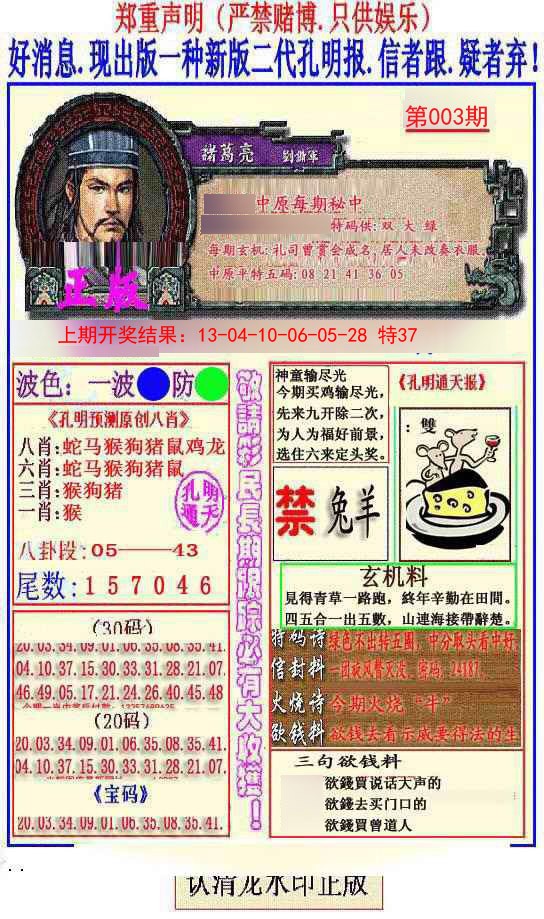 郑重声明（严禁赌博.只供娱乐）
好消息.现出版一种新版二代孔明报.信者跟.疑者弃!
第003期
諸葛亮 劉備軍
中原每期秘中
特码供: 双 大 绿
每期玄机: 礼司曾賓会成名, 居人未改奏衣服
中原平特五码: 08 21 41 36 05
正版
上期开奖结果：13-04-10-06-05-28 特37
波色：一波 防
《孔明预测原创八肖》
八肖:蛇马猴狗猪鼠鸡龙
六肖:蛇马猴狗猪鼠
三肖:猴狗猪
一肖:猴
孔明
通天
八卦段:05———43
尾数:157046
(30码)
20.03.34.09.01.06.35.08.35.41.
04.10.37.15.30.33.31.28.21.07.
46.49.05.17.21.24.26.40.45.48
(20码)
20.03.34.09.01.06.35.08.35.41.
04.10.37.15.30.33.31.28.21.07.
《宝码》
20.03.34.09.01.06.35.08.35.41.
敬請彩民長期跟踪必有大收獲!
神童输尽光
今期买鸡输尽光，
先来九开除二次，
为人为福好前景，
选住六来定头奖。
禁 兔羊
《孔明通天报》
：雙
玄机料
見得青草一路跑，終年辛勤在田間。
四五合一出五數，山連海接帶辭楚。
特码诗 绿色不出转五圈，中分取头看中好,
信封料 一团旋风臀又发，密码：24187.
火烧诗 今期火烧“牛”
欲钱料 欲钱去看示威要得法的生
三句欲钱料
欲錢買说话大声的
欲錢去买门口的
欲錢買曾道人
认清龙水印正版